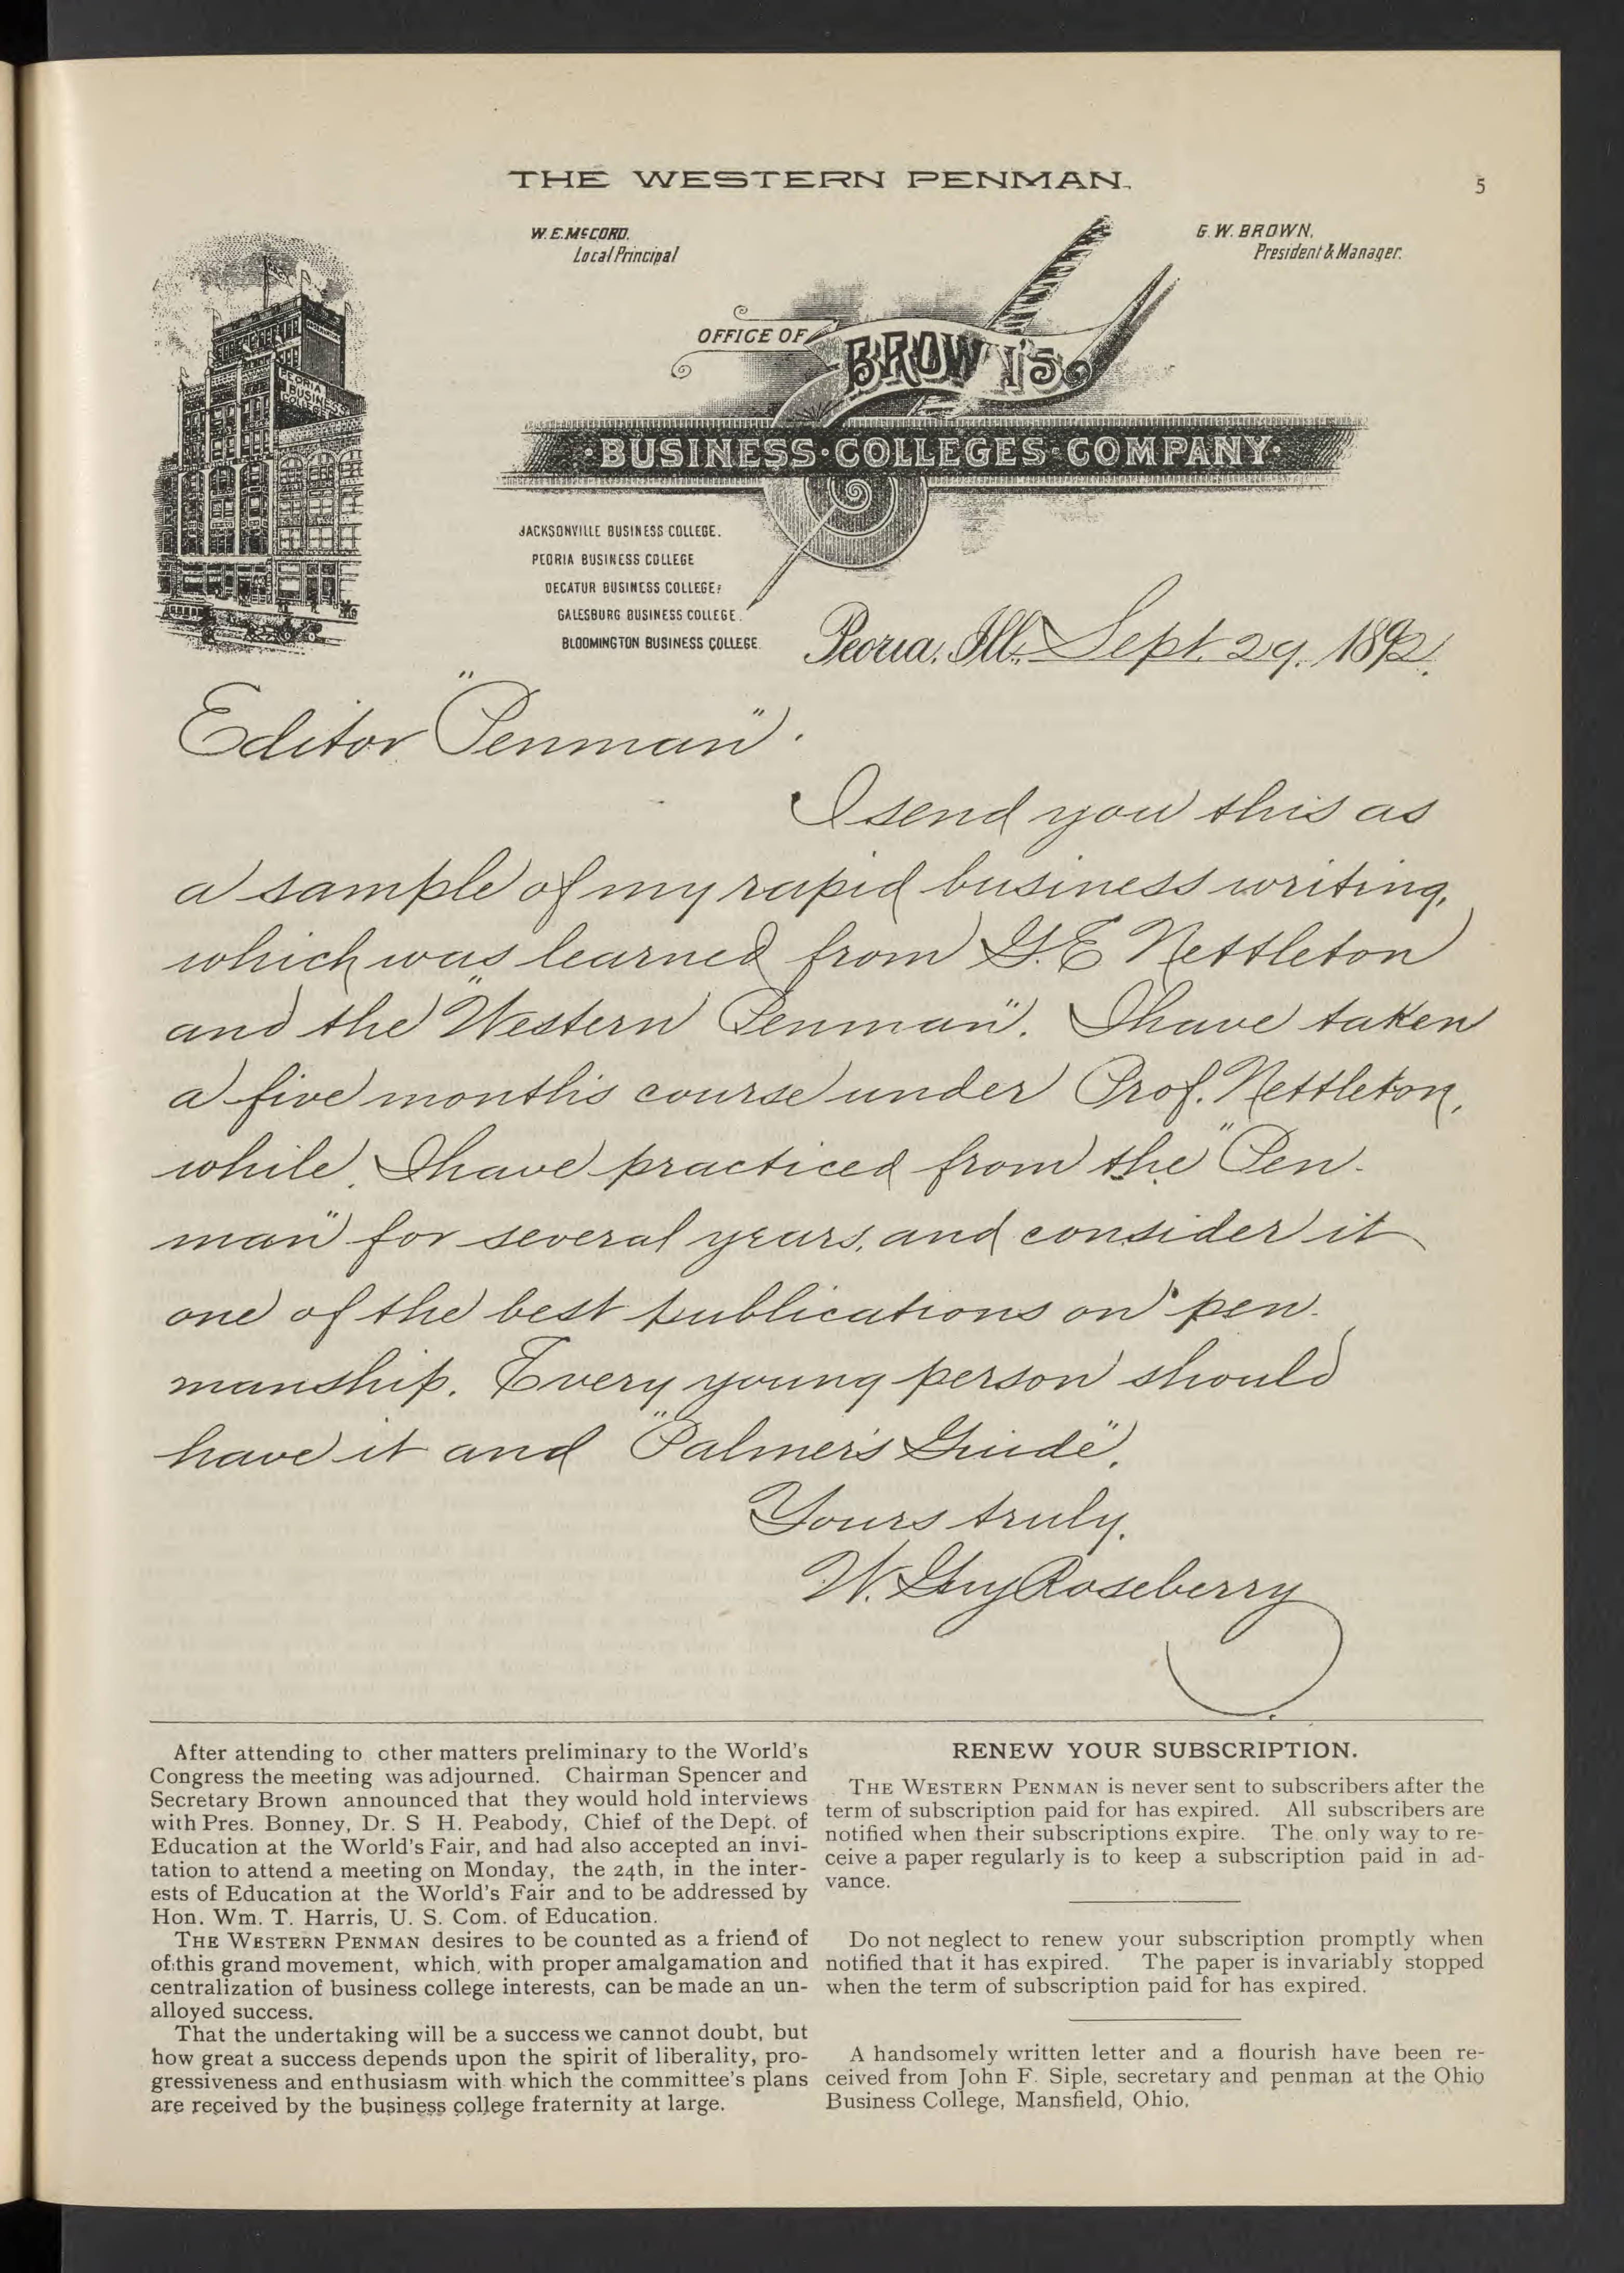 THE WESTERN PENMAN.
5
W. E. McCORD,
Local Principal
G. W. BROWN,
President & Manager.
OFFICE OF
BROWN'S
BUSINESS · COLLEGES · COMPANY
PEORIA
BUSINESS
COLLEGE
JACKSONVILLE BUSINESS COLLEGE.
PEORIA BUSINESS COLLEGE
DECATUR BUSINESS COLLEGE.
GALESBURG BUSINESS COLLEGE.
BLOOMINGTON BUSINESS COLLEGE
Peoria, Ill., Sept. 29, 1892.
Editor "Penman".
I send you this as
a sample of my rapid business writing,
which was learned from G. E. Nettleton
and the "Western Penman". I have taken
a five month's course under Prof. Nettleton,
while, I have practiced from the "Pen-
man" for several years, and consider it
one of the best publications on pen-
manship. Every young person should
have it and "Palmer's Guide".
Yours truly,
W. Guy Roseberry
After attending to other matters preliminary to the World's
Congress the meeting was adjourned. Chairman Spencer and
Secretary Brown announced that they would hold interviews
with Pres. Bonney, Dr. S H. Peabody, Chief of the Dept. of
Education at the World's Fair, and had also accepted an invi-
tation to attend a meeting on Monday, the 24th, in the inter-
ests of Education at the World's Fair and to be addressed by
Hon. Wm. T. Harris, U. S. Com. of Education.
THE WESTERN PENMAN desires to be counted as a friend of
of this grand movement, which, with proper amalgamation and
centralization of business college interests, can be made an un-
alloyed success.
That the undertaking will be a success we cannot doubt, but
how great a success depends upon the spirit of liberality, pro-
gressiveness and enthusiasm with which the committee's plans
are received by the business college fraternity at large.
RENEW YOUR SUBSCRIPTION.
THE WESTERN PENMAN is never sent to subscribers after the
term of subscription paid for has expired. All subscribers are
notified when their subscriptions expire. The only way to re-
ceive a paper regularly is to keep a subscription paid in ad-
vance.
Do not neglect to renew your subscription promptly when
notified that it has expired. The paper is invariably stopped
when the term of subscription paid for has expired.
A handsomely written letter and a flourish have been re-
ceived from John F. Siple, secretary and penman at the Ohio
Business College, Mansfield, Ohio.